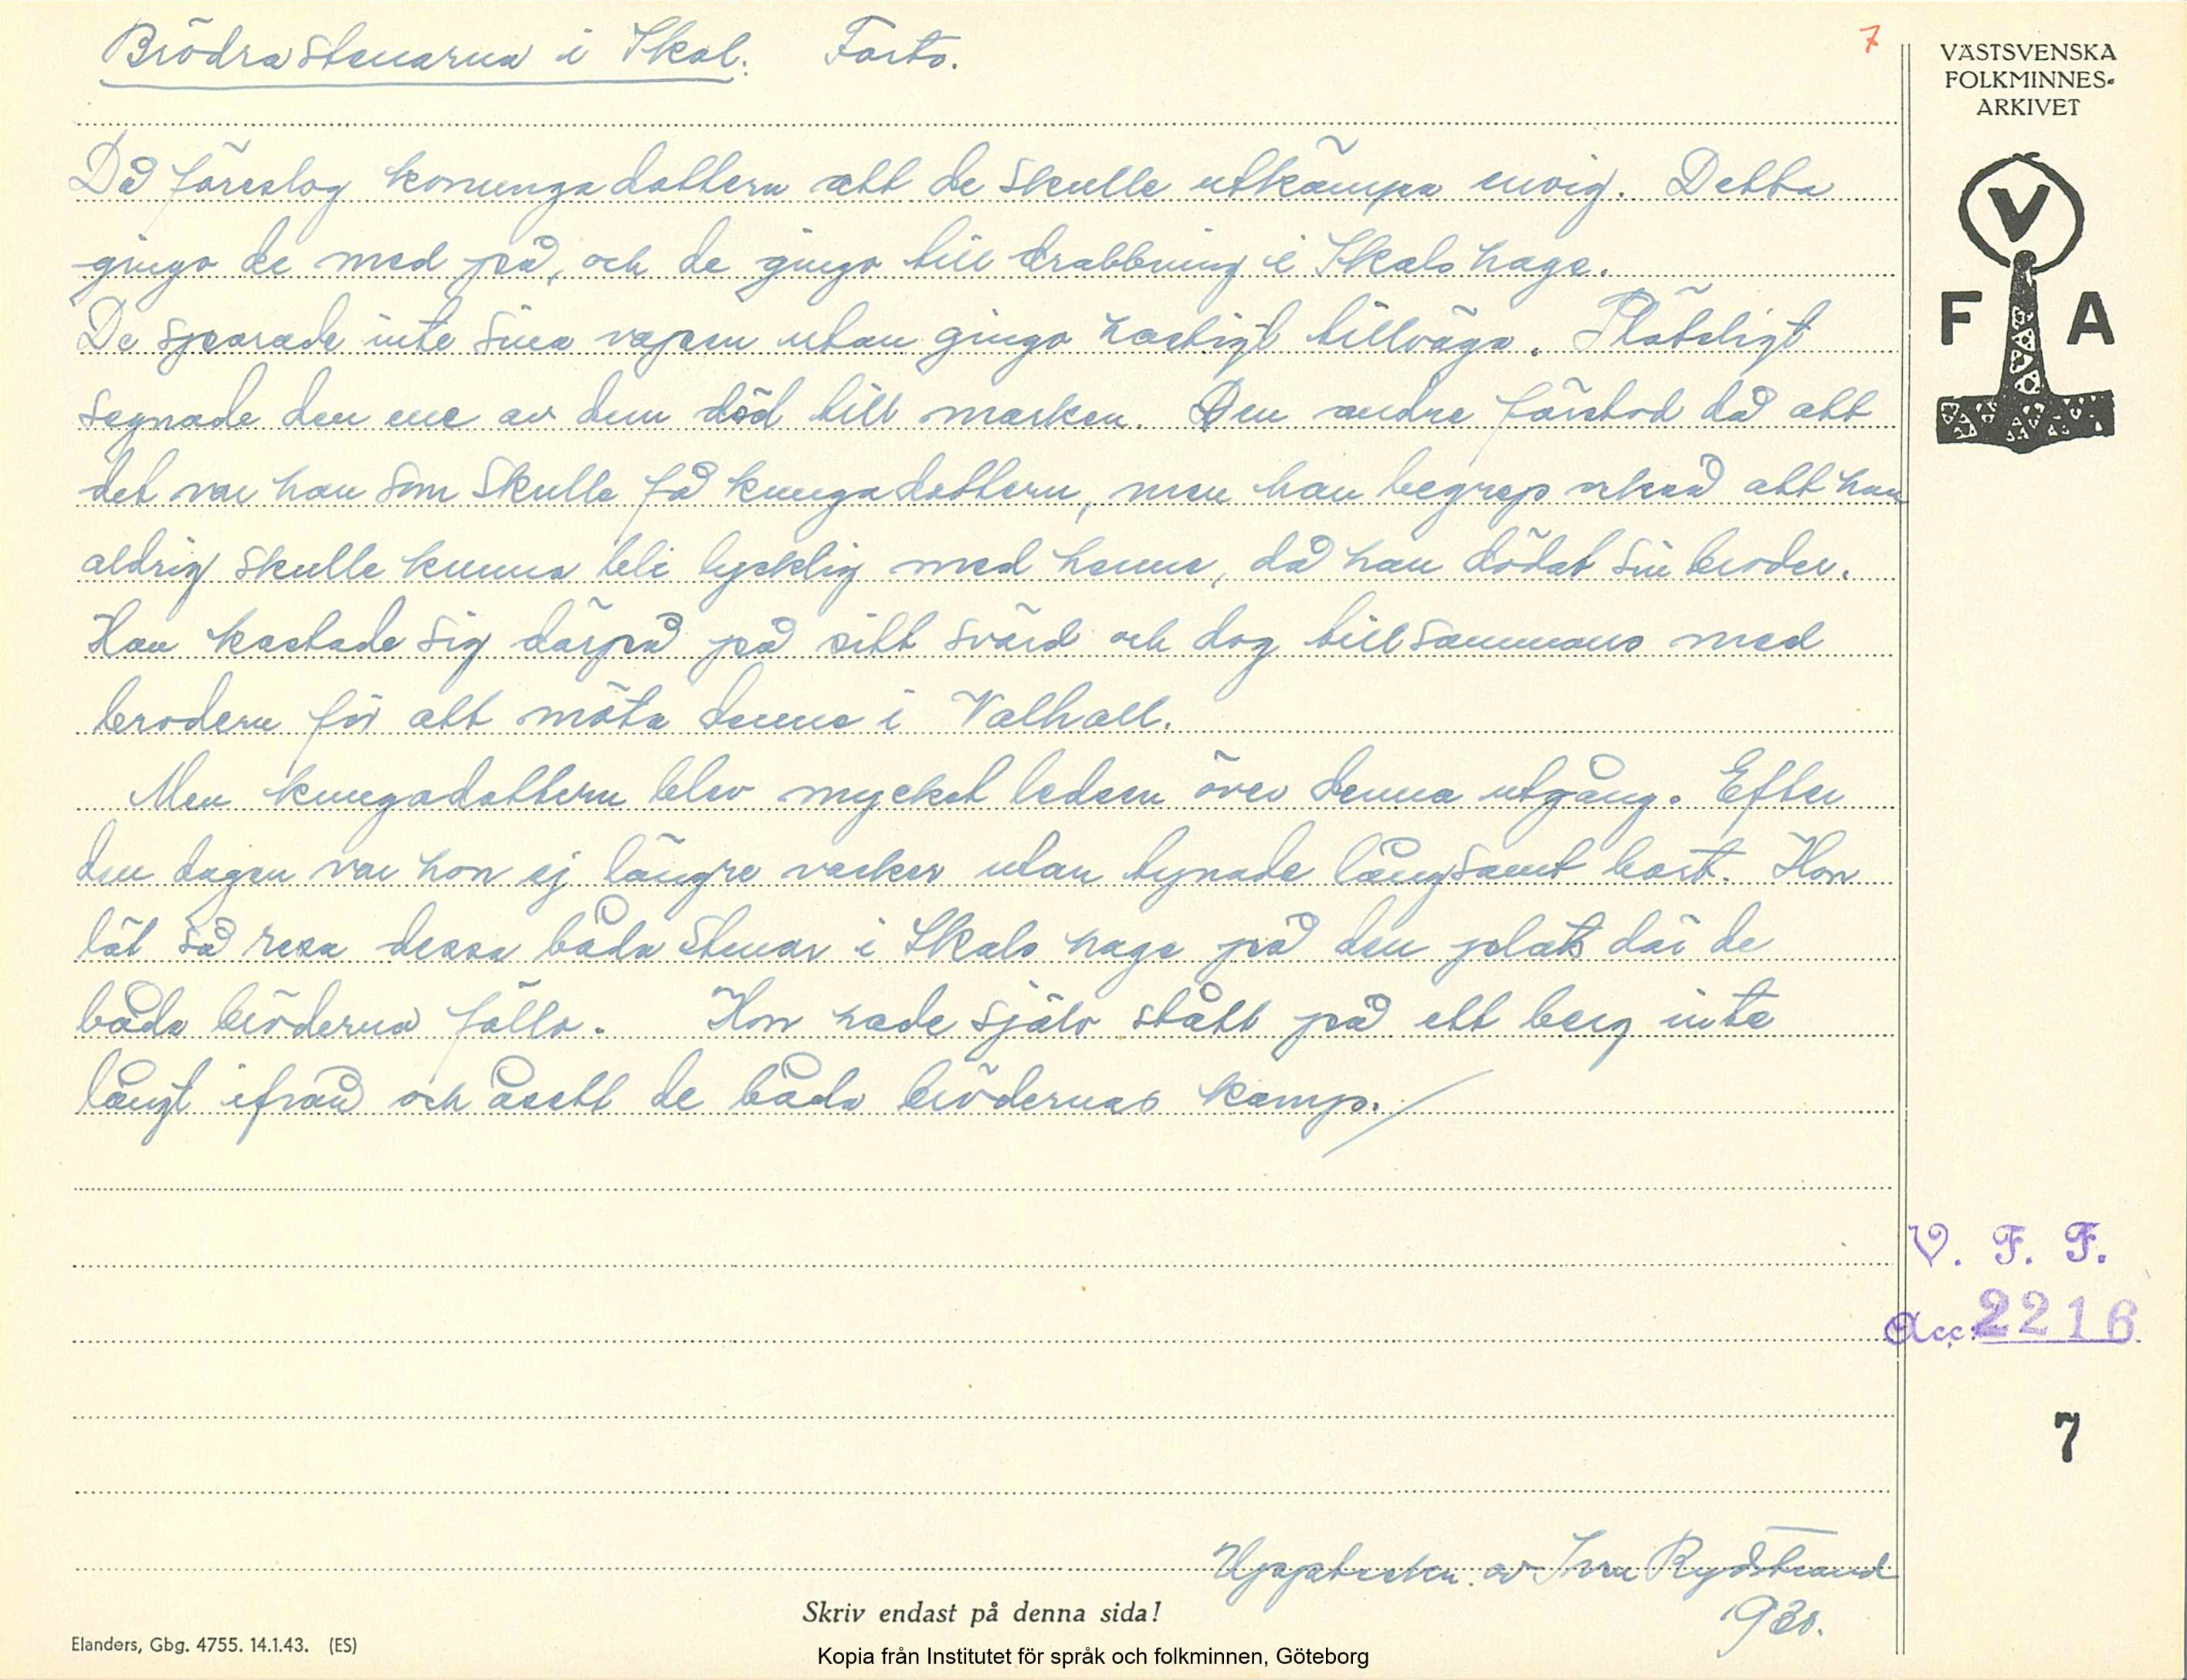 Brödrastenarna i Skal. Forts.
7
VÄSTSVENSKA
FOLKMINNES-
ARKIVET
V
F A
Då föreslog konungadottern att de skulle utkämpa envig. Detta
gingo de med på, och de gingo till drabbning i Skals hage.
De sparade inte sina vapen utan gingo hastigt tillväga. Plötsligt
segnade den ene av dem död till marken. Den andre förstod då att
det var han som skulle få kungadottern, men han begrep också att han
aldrig skulle kunna bli lycklig med henne, då han dödat sin broder.
Han kastade sig därpå på sitt svärd och dog tillsammans med
brodern för att möta denne i Valhall.
Men kungadottern blev mycket ledsen över denna utgång. Efter
den dagen var hon ej längre vacker utan tynade långsamt bort. Hon
lät så resa dessa båda stenar i Skals hage på den plats där de
båda bröderna föllo. Hon hade själv stått på ett berg inte
långt ifrån och åsett de båda brödernas kamp.
V. F. F.
Acc: 2216
7
Upptecken. av Rydstrand
193
Skriv endast på denna sida!
Elanders, Gbg. 4755. 14.1.43. (ES)
Kopia från Institutet för språk och folkminnen, Göteborg